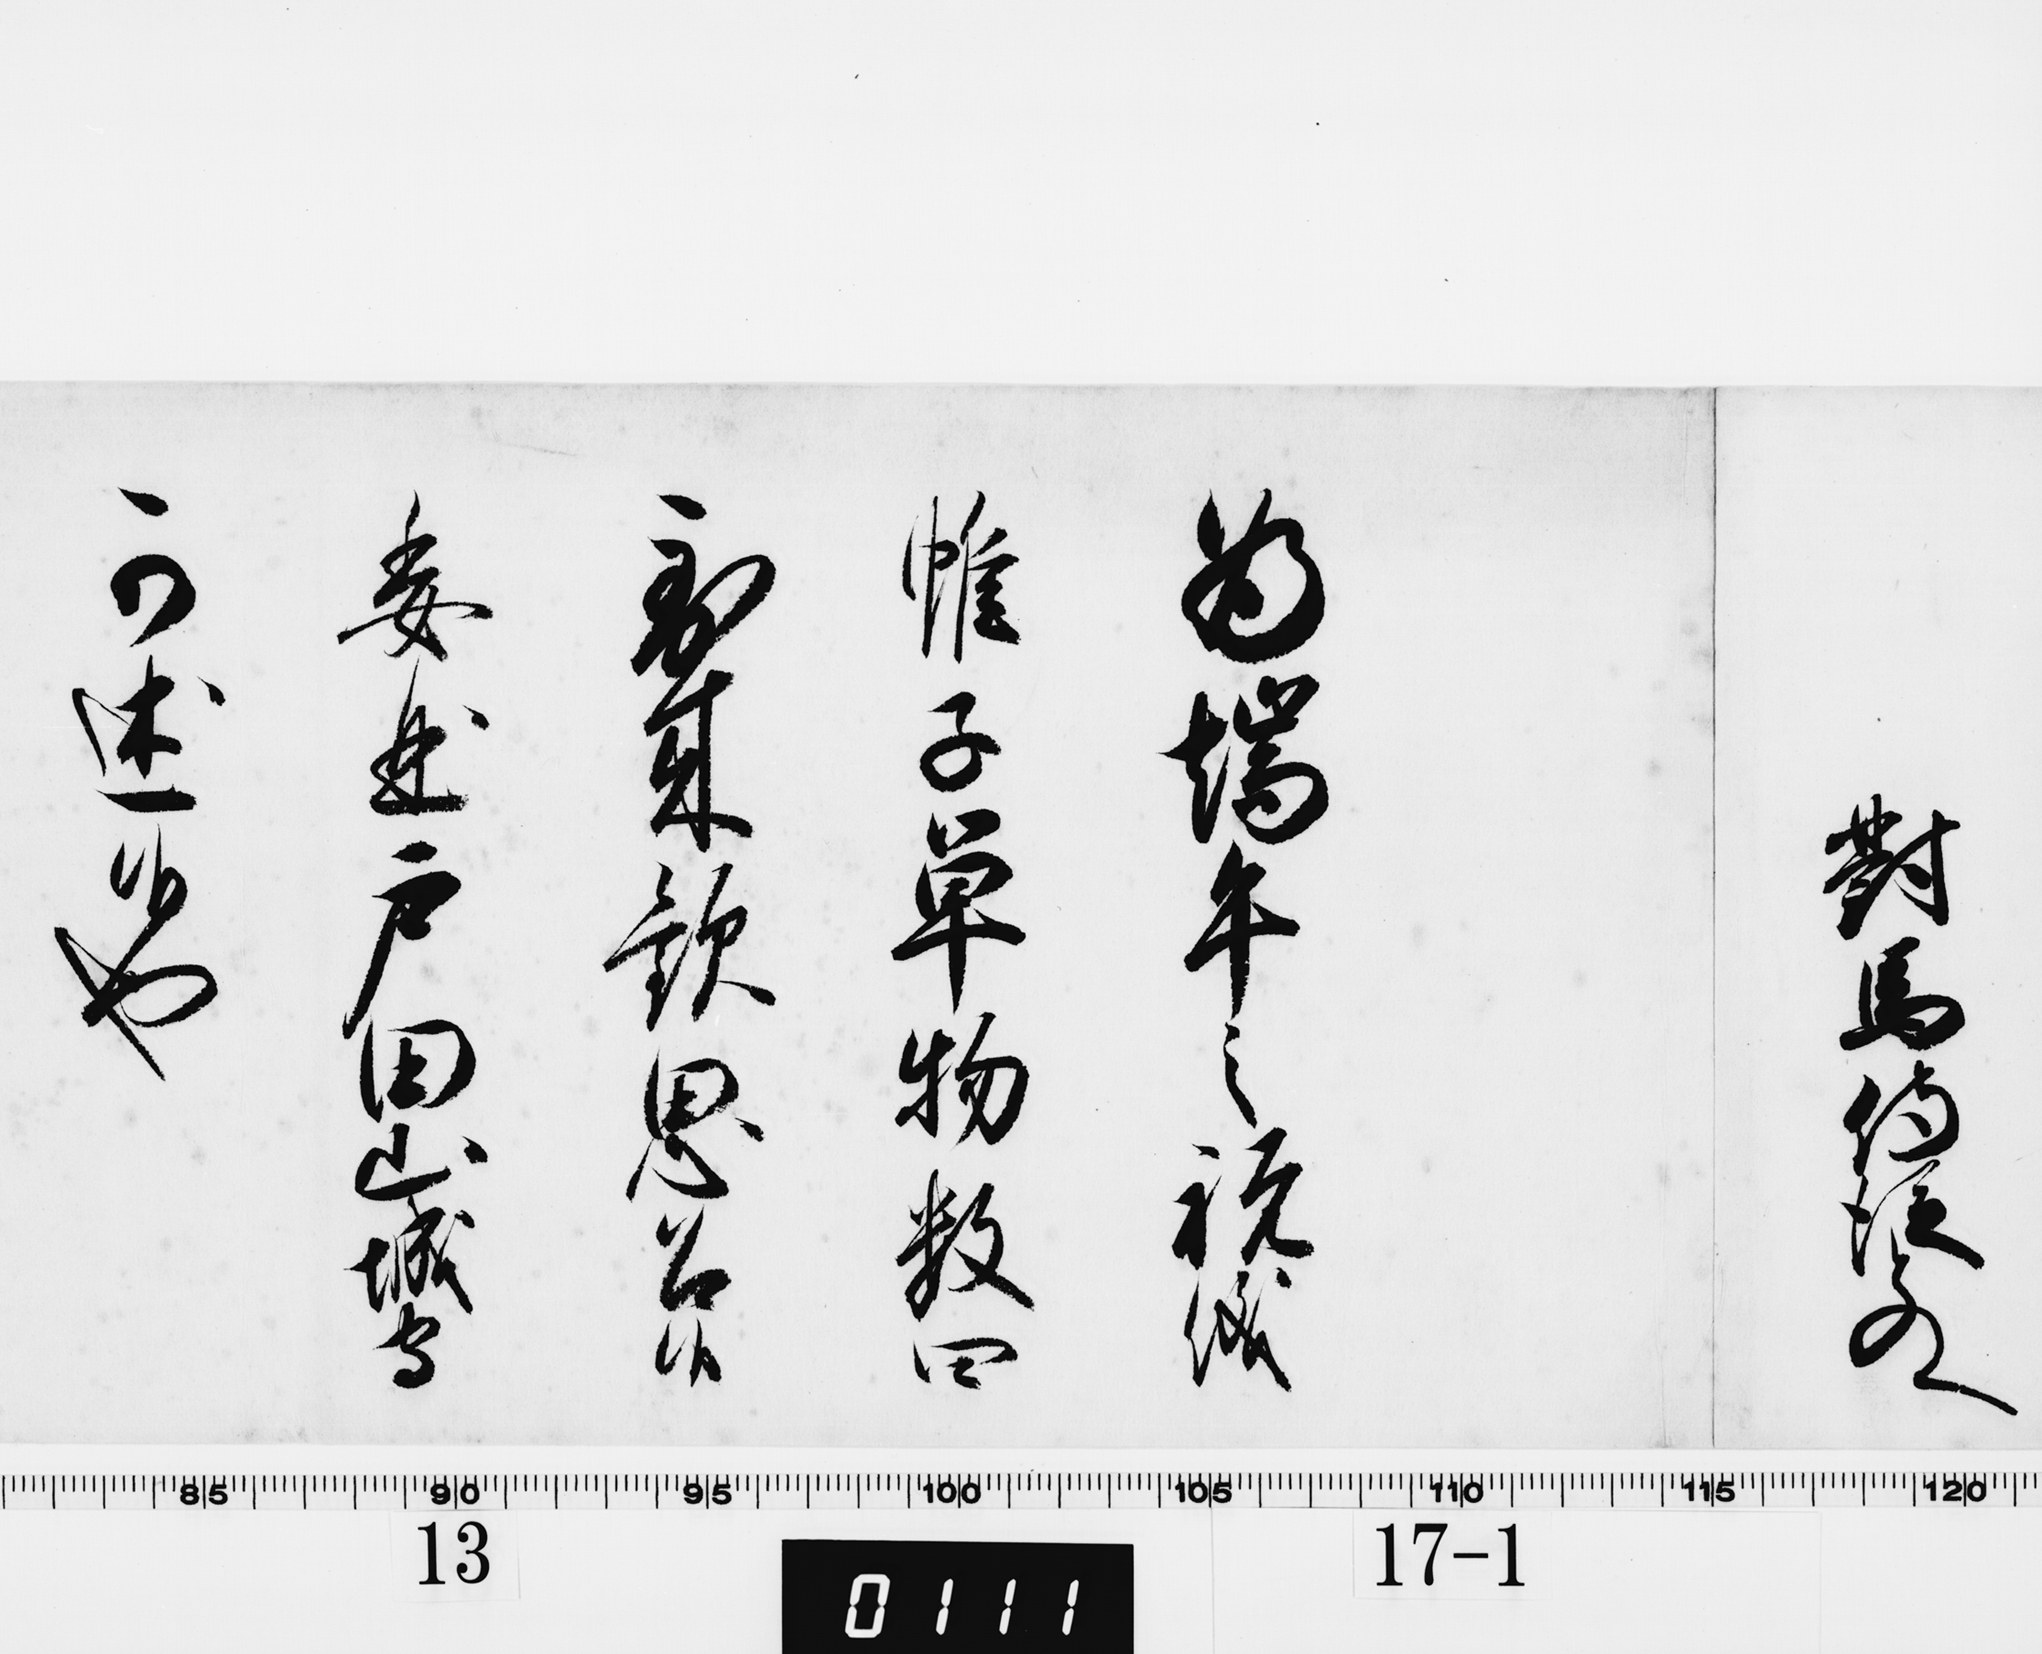 對馬侍従とのへ
為端午之祝儀
帷子単物数四
到来歓思召候
委曲戸田山城守
可述候也
85 90 95 100 105 110 115 120
13
17-1
0111